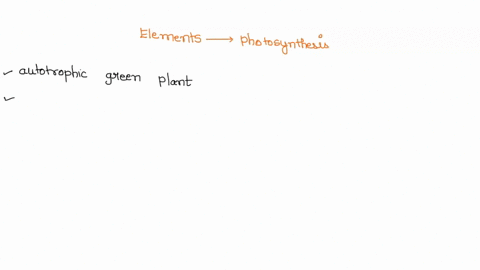 Elements → photosynthesis
✓ autotrophic green plant
✓